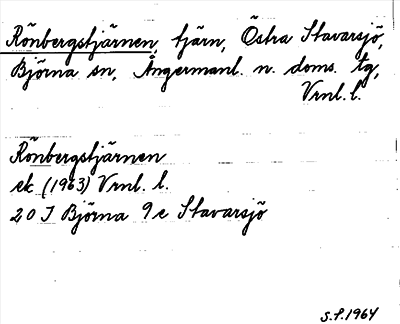 Rönbergstjärnen, tjärn, Östra Stavarsjö,
Björna sn, Ångermanl. n. doms. tg,
Vrnl. l.
Rönbergstjärnen
ek (1963) Vrnl. l.
20 J Björna 9 e Stavarsjö
S.P. 1964